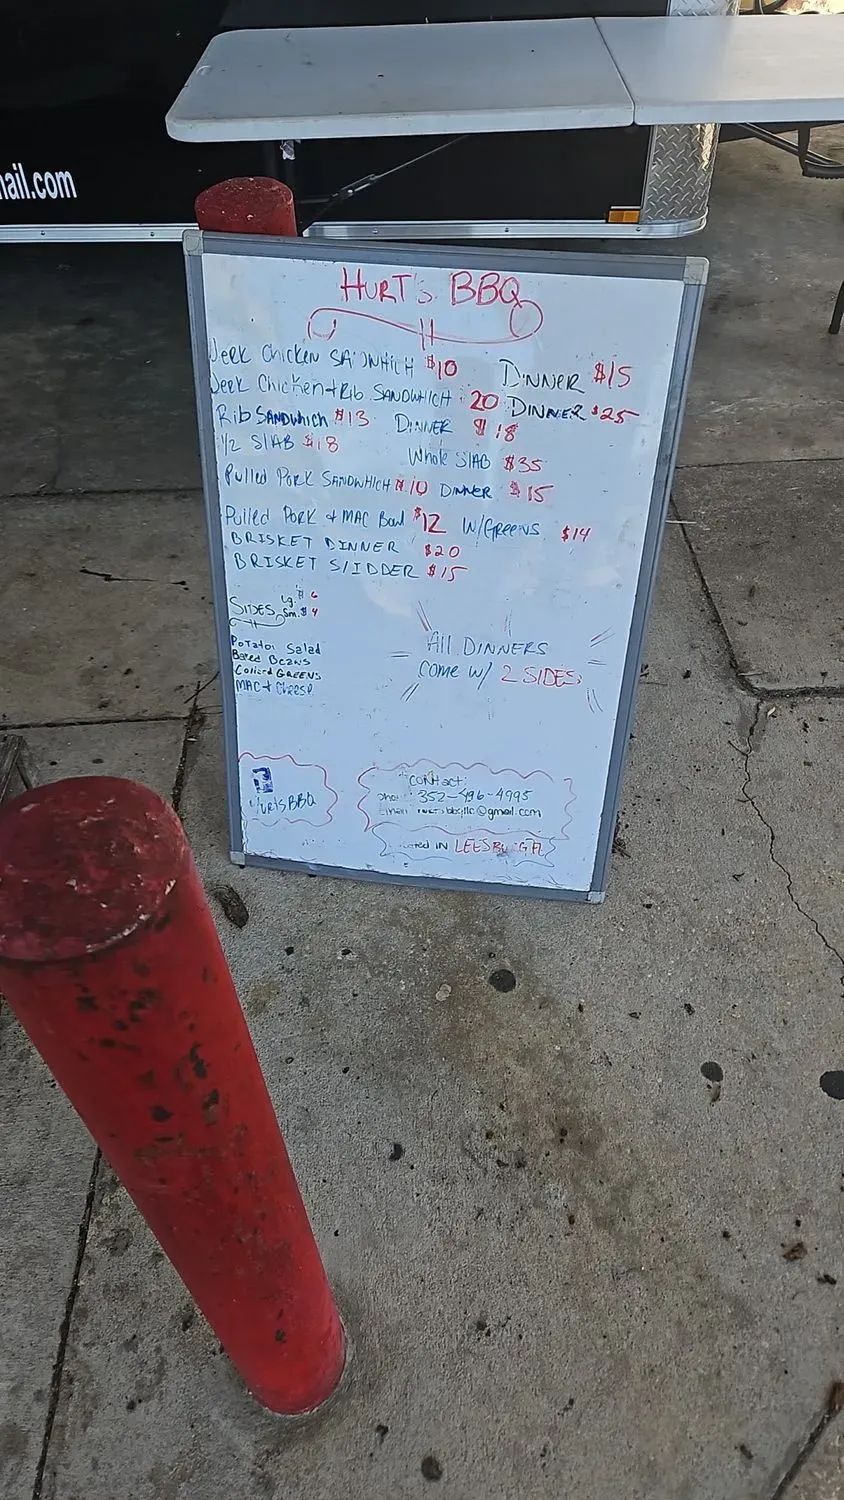 ail.com
HURT'S BBQ
Jerk Chicken SANDWHICH $10 DINNER $15
Jerk Chicken + Rib SANDWHICH 20 DINNER $25
Rib SANDWhich $13 DINNER $18
1/2 SlAB $18 Whole SlAB $35
Pulled Pork SANDWHICH $10 DINNER $15
Pulled Pork & MAC Bowl $12 W/GREENS $14
BRISKET DINNER $20
BRISKET SlIDDER $15
Lg. $6
SIDES Sm. $4
Potatoe Salad
Baked Beans
Collard GREENS
MAC + Cheese
All DINNERS
Come w/ 2 SIDES
Contact:
HurtsBBQ
352-496-4995
Email @gmail.com
IN LEESBURG FL